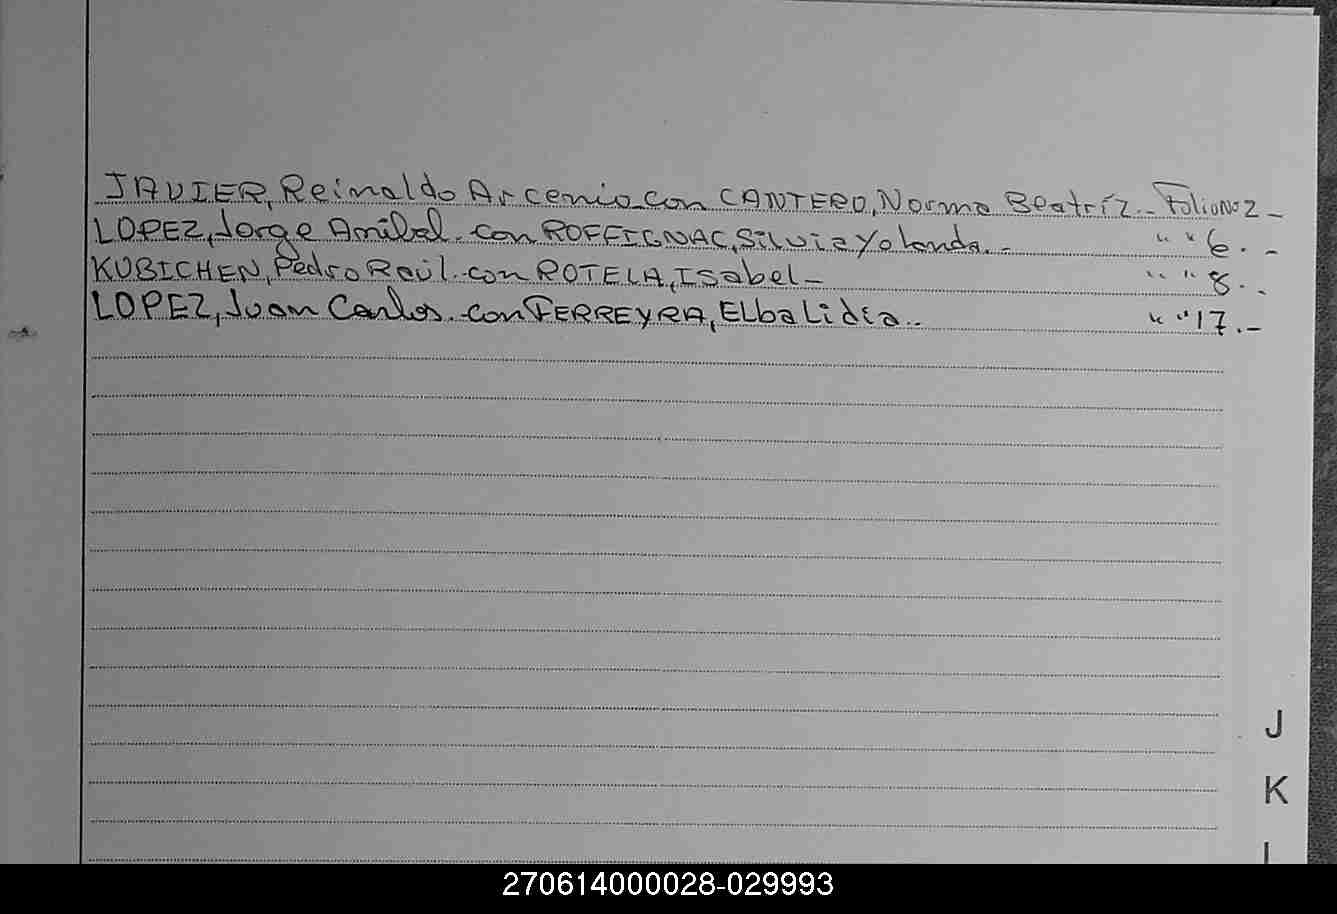 JAVIER, Reinaldo Arcenio con CANTERO, Norma Beatríz.- Folio Nº 2-
LOPEZ, Jorge Anibal. con ROFFIGNAC, Silvia Yolanda..- " " 6.-
KUBICHEN, Pedro Raúl. con ROTELA, ISabel- " " 8.-
LOPEZ, Juan Carlos. con FERREYRA, Elba Lidia.. " " 17.-
J
K
L
270614000028-029993